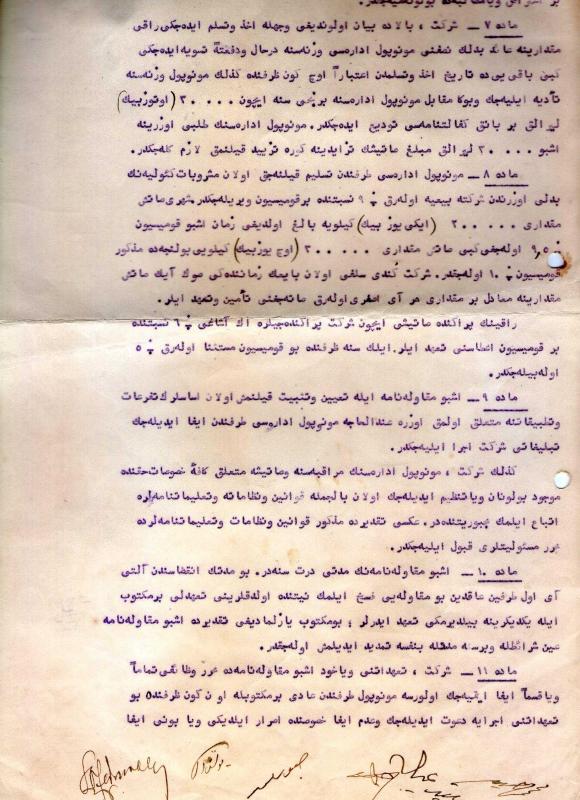 ماده ٧ ــ شركت ، بالاده بيان اولونديغى وجهله اخذ وتسلم ايده‌جكى راقى
مقدارينه عائد بدلك نصفنى مونوپول اداره‌سى وزنه‌سنه درحال ودفعةً تسويه ايده‌جكى
كبى باقى‌يى‌ده تاريخ اخذ وتسلمدن اعتباراً اوچ كون ظرفنده كذلك مونوپول وزنه‌سنه
تأديه ايليه‌جك وبوكا مقابل مونوپول اداره‌سنه برنجى سنه ايچون ٣٠٠٠٠ (اوتوزبيك)
ليرالق بر بانق كفالتنامه‌سى توديع ايده‌جكدر. مونوپول اداره‌سنك طلبى اوزرينه
اشبو ٣٠٠٠٠ ليرالق مبلغ صاتيشك تزايدينه كوره تزييد قيلنمق لازم كله‌جكدر.
ماده ٨ ــ مونوپول اداره‌سى طرفندن تسليم قيلنه‌جق اولان مشروبات كئوليه‌نك
بدلى اوزرندن شركته بيعيه اوله‌رق ٪ ٩ نسبتنده برقوميسيون ويريله‌جكدر. شهرى صاتش
مقدارى ٢٠٠٠٠٠ (ايكى يوز بيك) كيلويه بالغ اولديغى زمان اشبو قوميسيون
٪ ٩,٥ اوله‌جغى كبى صاتش مقدارى ٣٠٠٠٠٠ (اوچ يوزبيك) كيلويى بولنجه‌ده مذكور
قوميسيون ٪ ١٠ اوله‌جقدر. شركت كندى سلفى اولان بايعك زماننده‌كى صوك آيك صاتش
مقدارينه معادل بر مقدارى هر آى اصغرى اوله‌رق صاته‌جغنى تأمين وتعهد ايلر.
راقينك پراكنده صاتيشى ايچون شركت پراكنده‌جيلره اك آشاغى ٪ ٦ نسبتنده
بر قوميسيون اعطاسنى تعهد ايلر. ايلك سنه ظرفنده بو قوميسيون مستثنا اوله‌رق ٪ ٥
اوله‌بيله‌جكدر.
ماده ٩ ــ اشبو مقاوله‌نامه ايله تعيين وتثبيت قيلنمش اولان اساسلرك تفرعات
وتطبيقاتنه متعلق اولمق اوزره عندالحاجه مونوپول اداره‌سى طرفندن ايفا ايديله‌جك
تبليغاتى شركت اجرا ايليه‌جكدر.
كذلك شركت ، مونوپول اداره‌سنك مراقبه‌سنه وصاتيشه متعلق كافۀ خصوصات‌حقنده
موجود بولونان وياتنظيم ايديله‌جك اولان بالجمله قوانين ونظاماته وتعليماتنامه‌لره
اتباع ايلمك مجبوريتنده‌در. عكسى تقديرده مذكور قوانين ونظامات وتعليماتنامه‌لرده
محرر مسئوليتلرى قبول ايليه‌جكدر.
ماده ١٠ ــ اشبو مقاوله‌نامه‌نك مدتى درت سنه‌در. بو مدتك انقضاسندن آلتى
آى اول طرفين عاقدين بو مقاوله‌يى فسخ ايلمك نيتنده اولدقلرينى تعهدلى برمكتوب
ايله يكديكرينه بيلديرمكى تعهد ايدرلر ؛ بومكتوب يازلماديغى تقديرده اشبو مقاوله‌نامه
عين شرائطله وبرسنه مدتله بنفسه تمديد ايديلمش اوله‌جقدر.
ماده ١١ ــ شركت ، تعهداتنى وياخود اشبو مقاوله‌نامه‌ده محرر وظائفى تماماً
وياقسماً ايفا ايتميه‌جك اولورسه مونوپول طرفندن عادى برمكتوبله اون‌كون ظرفنده بو
تعهداتنى اجرايه دعوت ايديله‌جك وعدم ايفا خصوصنده اصرار ايلديكى ويا بونى ايفا